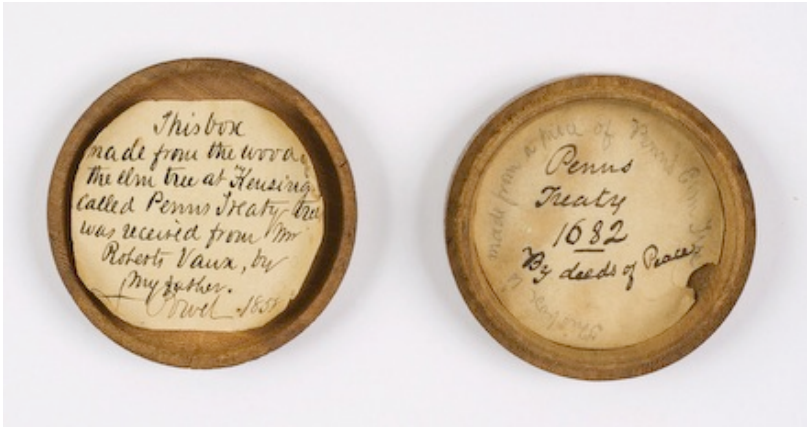 This box
made from the wood
the elm tree at Kensing
called Penns Treaty tree
was received from Mr
Roberts Vaux, by
my father.
Powel 1858
Penns
Treaty
1682
By deeds of Peace
made from a piece of Penns Elm